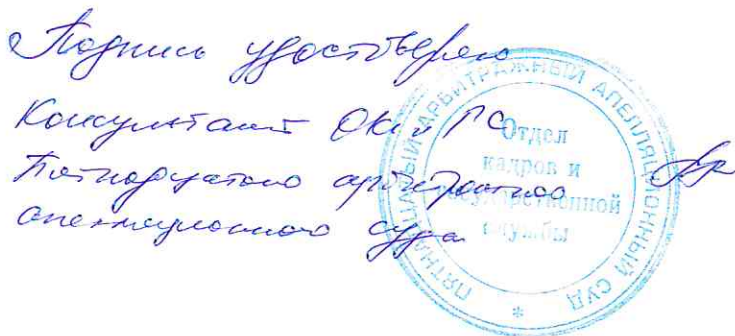 Подпись удостоверяю
Консультант ОК и ГС
Пятнадцатого арбитражного
апелляционного суда
ПЯТНАДЦАТЫЙ АРБИТРАЖНЫЙ АПЕЛЛЯЦИОННЫЙ СУД
*
Отдел
кадров и
государственной
службы